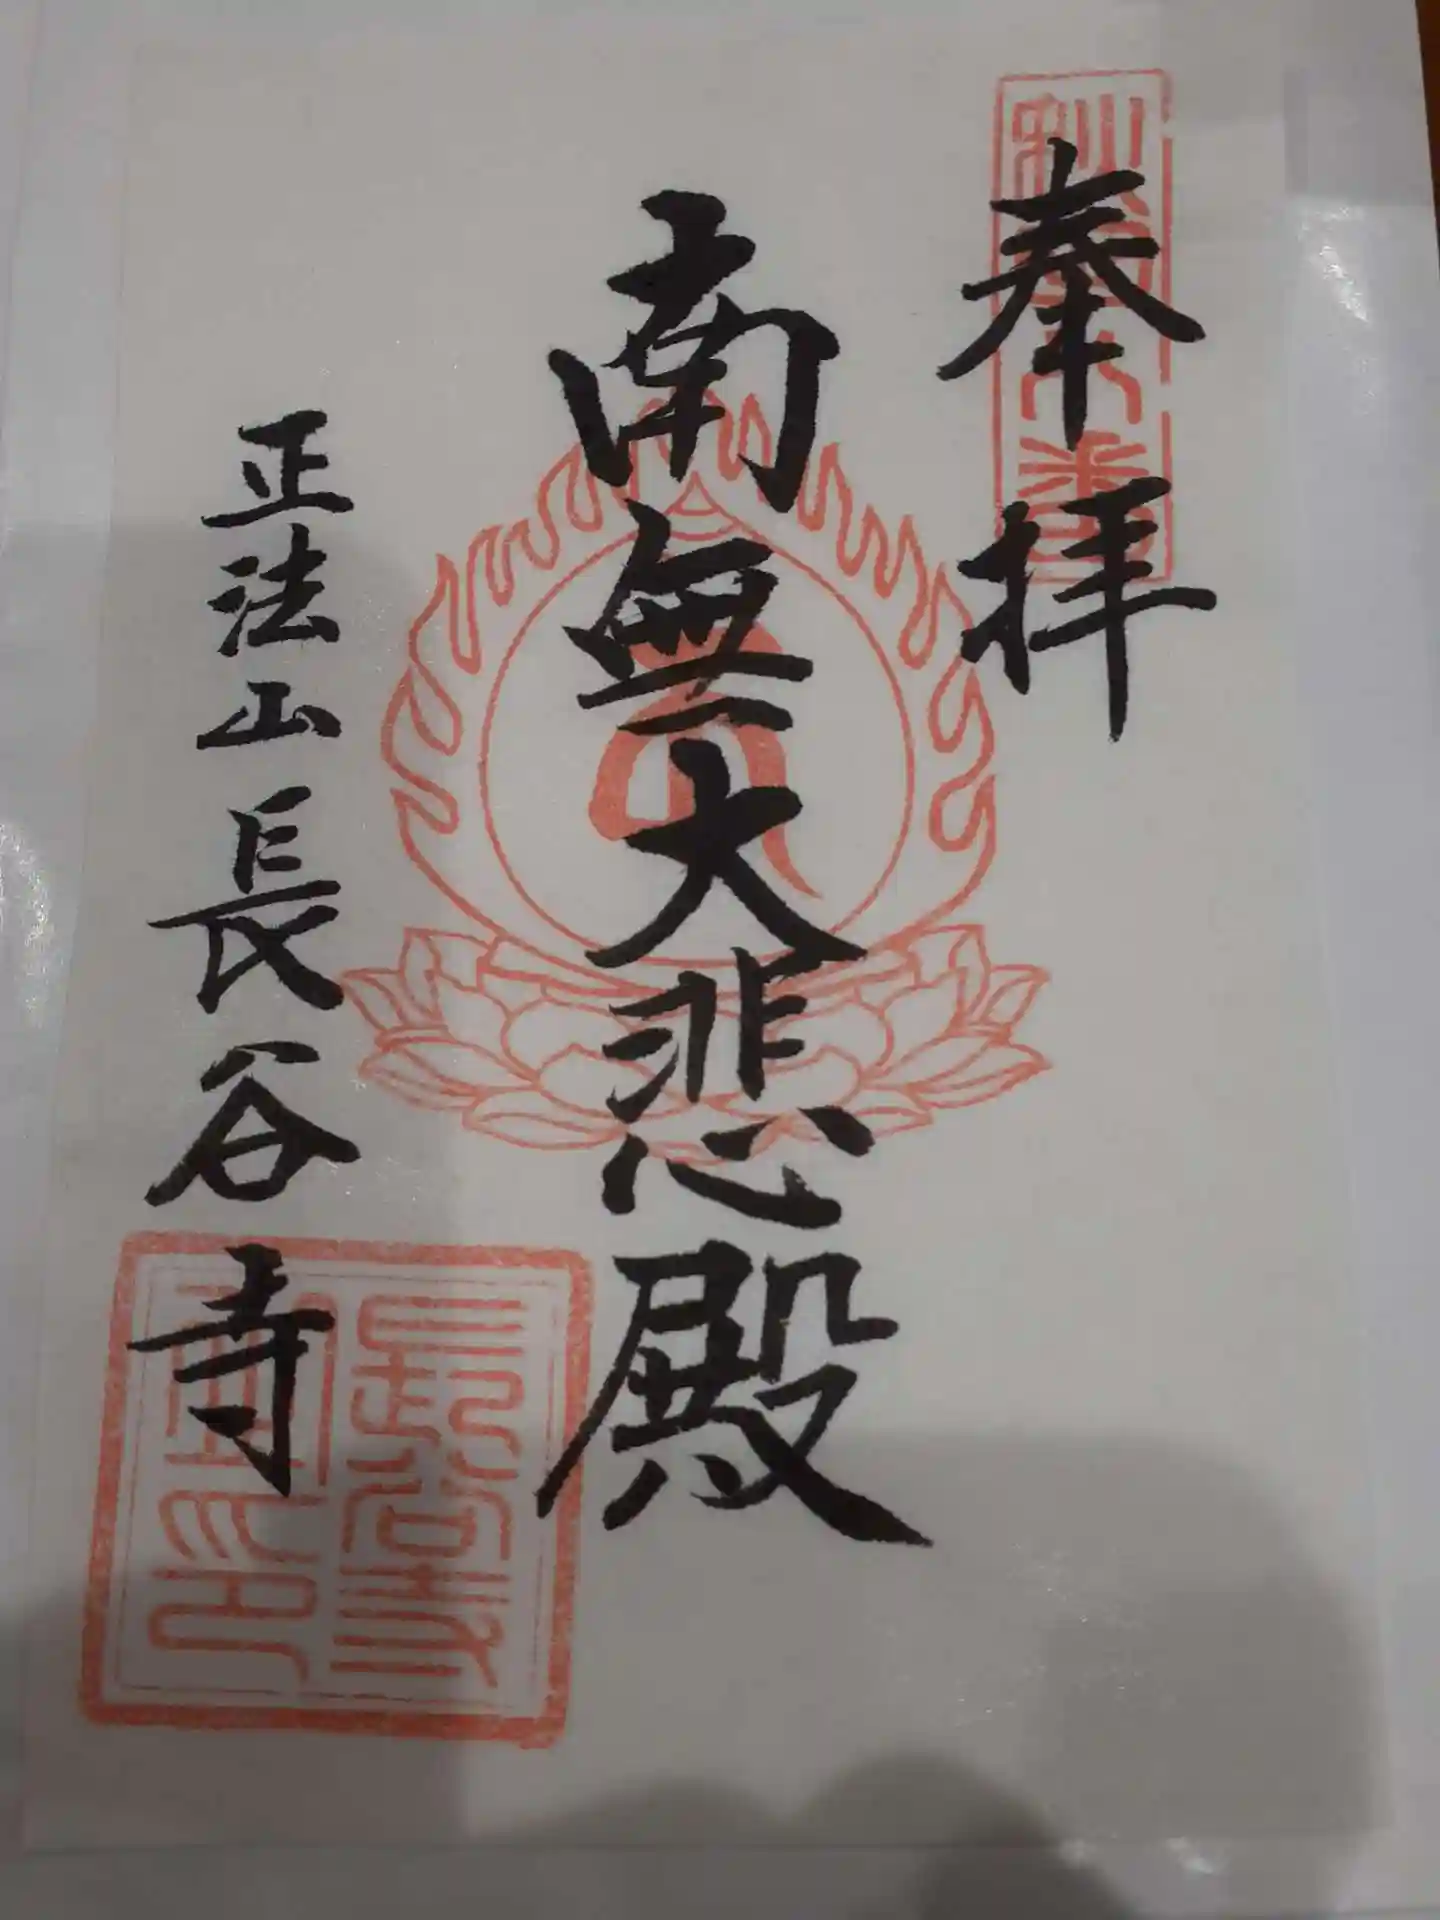 奉拝
南無大悲殿
正法山長谷寺
長谷寺